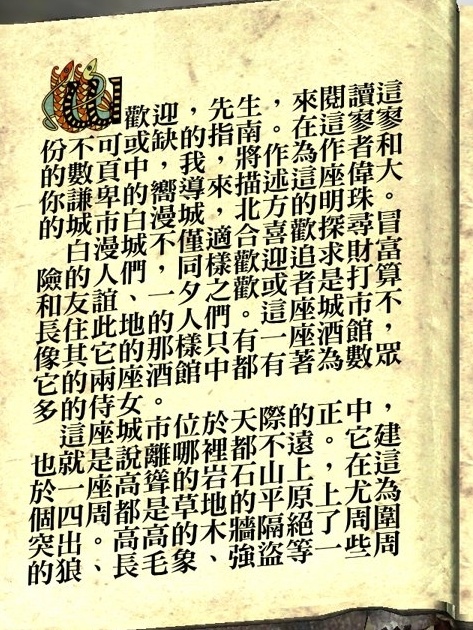 歡迎,先生,來閱讀這
份不可或缺的指南。在這家家
的數頁中,我將作為作者和
你謙卑的嚮導,來描述這座偉大
的城市白漫城,北方的明珠。
白漫城不僅適合喜歡探尋冒
險的人們,同樣歡迎追求財富
和友誼、一夕之歡或者是打算
長住此地的人們。這座城市不
像其它的那樣只有一座酒館,
它的兩座酒館中都有著為數眾
多的侍女。
這座城市位於天際的正中,
也就是說離哪裡都不遠。它建
於一座高聳的岩石山上,在這
個四周都是草地的平原上尤為
突出。高高的木牆隔絕了周圍
的狼、長毛象、強盜等一些周